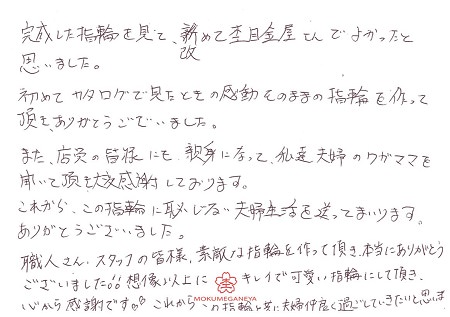 完成した指輪を見て、改めて杢目金屋さんでよかったと
思いました。
初めてカタログで見たときの感動そのままの指輪を作って
頂き、ありがとうございました。
また、店員の皆様にも、親身になって、私達夫婦のワガママを
聞いて頂き大変感謝しております。
これから、この指輪に恥じない夫婦生活を送ってまいります。
ありがとうございました。
職人さん、スタッフの皆様、素敵な指輪を作って頂き、本当にありがとう
ございました!! 想像以上にキレイで可愛い指輪にして頂き、
心から感謝です!! これからこの指輪と共に夫婦仲良く過ごしていきたいと思いま
MOKUMEGANEYA